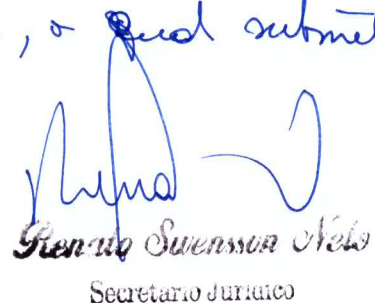 , a qual submet
Renato Swensson Neto
Secretário Jurídico